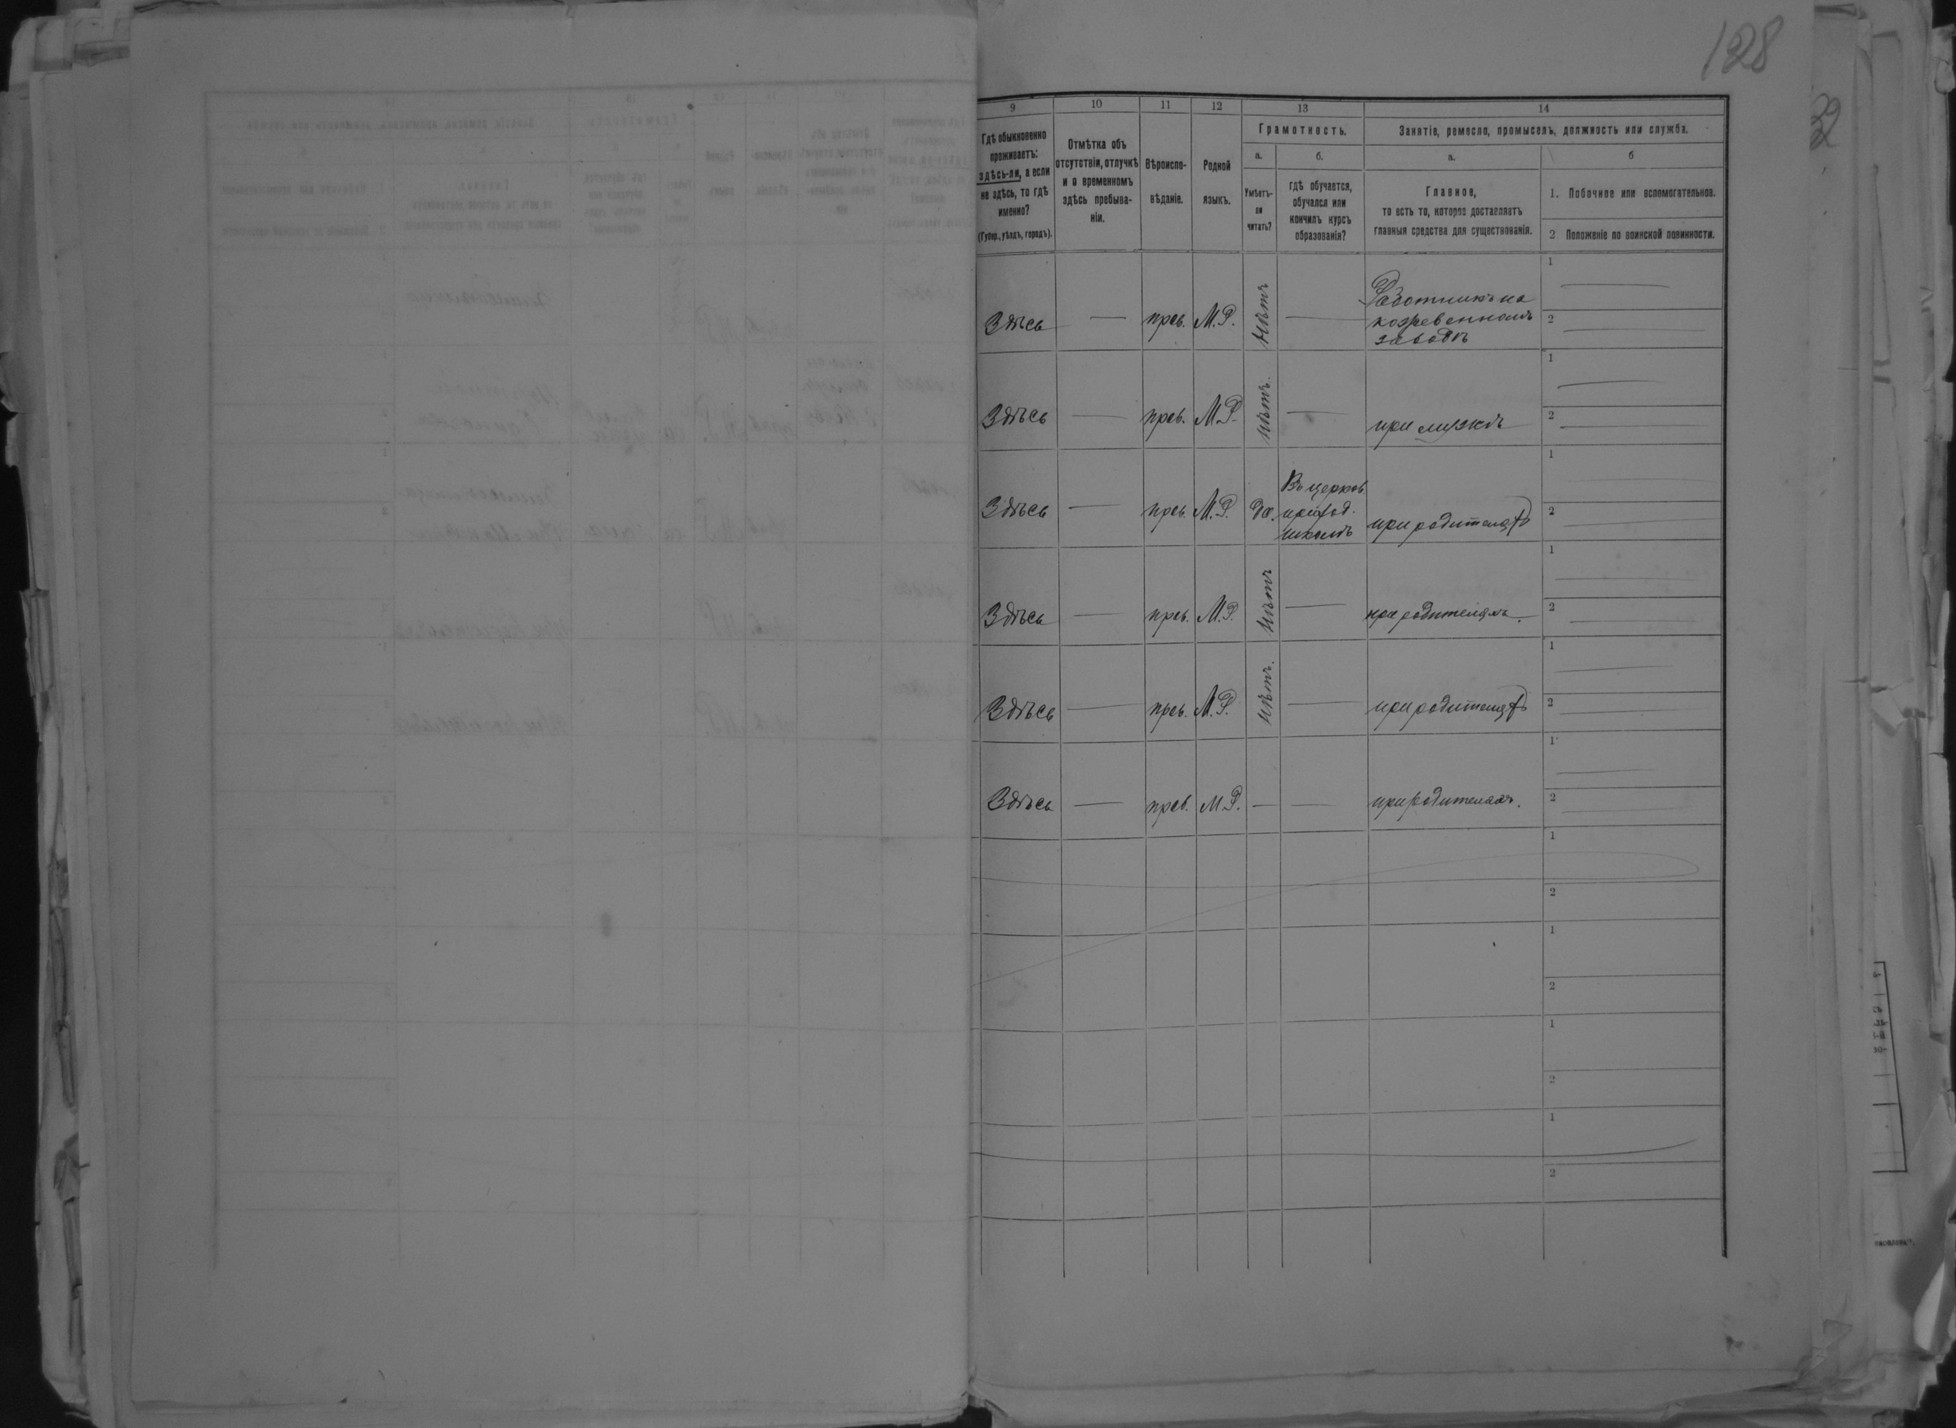 128
9 10 11 12 13 14
Гдѣ обыкновенно
проживаетъ:
здѣсь-ли, а если
не здѣсь, то гдѣ
именно?
(Губер., уѣздъ, городъ).
Отмѣтка объ
отсутствіи, отлучкѣ
и о временномъ
здѣсь пребыва-
ніи.
Вѣроиспо-
вѣданіе.
Родной
языкъ.
Грамотность.
а. б.
Умѣетъ-
ли
читать?
гдѣ обучается,
обучался или
кончилъ курсъ
образованія?
Занятіе, ремесло, промыселъ, должность или служба.
а. б
Главное,
то есть то, которое доставляетъ
главныя средства для существованія.
1. Побочное или вспомогательное.
2 Положеніе по воинской повинности.
1
Здѣсь — прав. М.Р. нѣтъ — Работникъ на
заводѣ
2
1
Здѣсь — прав. М.Р. нѣтъ. — при мужѣ
2
1
Здѣсь — прав. М.Р. да. Въ церков.
приход.
школѣ
при родителях
2
1
Здѣсь — прав. М.Р. нѣтъ — при родителяхъ.
2
1
Здѣсь — прав. М.Р. нѣтъ. — при родителях
2
1
Здѣсь — прав. М.Р. — — при родителяхъ.
2
1
2
1
2
1
2
1
2